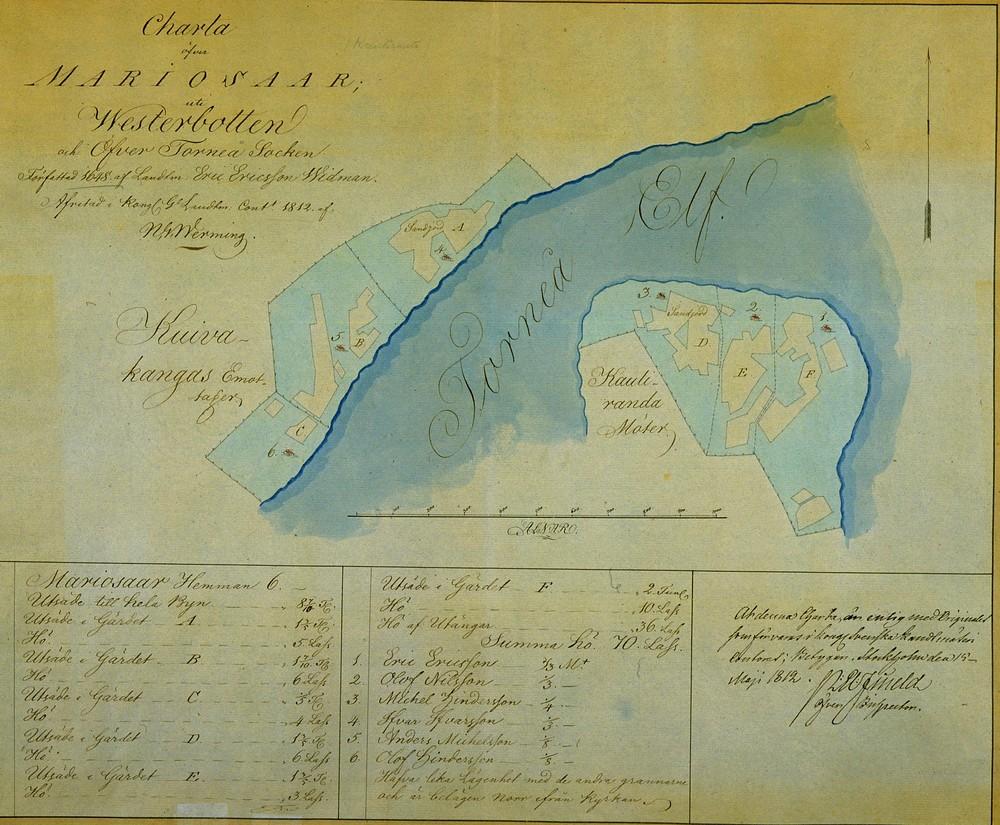 Charta
öfver
MARIOSAAR;
uti
Westerbotten
och Öfver Torneå Socken
Författad 1648 af Landtm. Eric Ericsson Widman.
Afritad i Kongl. Gl. Landtm. Cont. 1812. af
Werming.
Torneå Elf.
Sandjord A
4.
5.
B
Kuiva-
kangas Emot-
tager
C
6.
3.
Sandjord
D
2.
E
1.
F
Kauli-
randa
Möter
ALNAR.
Mariosaar Hemman 6.
Utsäde till hela Byn
Utsäde i Gärdet A
Hö 5 Lass
Utsäde i Gärdet B
Hö 6 Lass
Utsäde i Gärdet C
Hö 4 Lass
Utsäde i Gärdet D
Hö 6 Lass
Utsäde i Gärdet E
Hö 3 Lass
Utsäde i Gärdet F 2 Tunl.
Hö 10 Lass
Hö af Utängar 36 Lass
Summa Hö 70 Lass.
1. Eric Ericsson 2/3 Mt
2. Olof Nilsson
3. Michel Hindersson
4. Ifvar Ifvarsson
5. Anders Michelsson
6. Olof Hindersson
Hafva lika Lägenhet med de andra grannarne
och är belägen Norr ifrån Kyrkan.
At denna Charta, är enlig med Originalet
som förvaras i Kongl. Svenska Landtmäteri
Contoret; betygar. Stockholm den 15
Maji 1812.
Öfver Inspector.